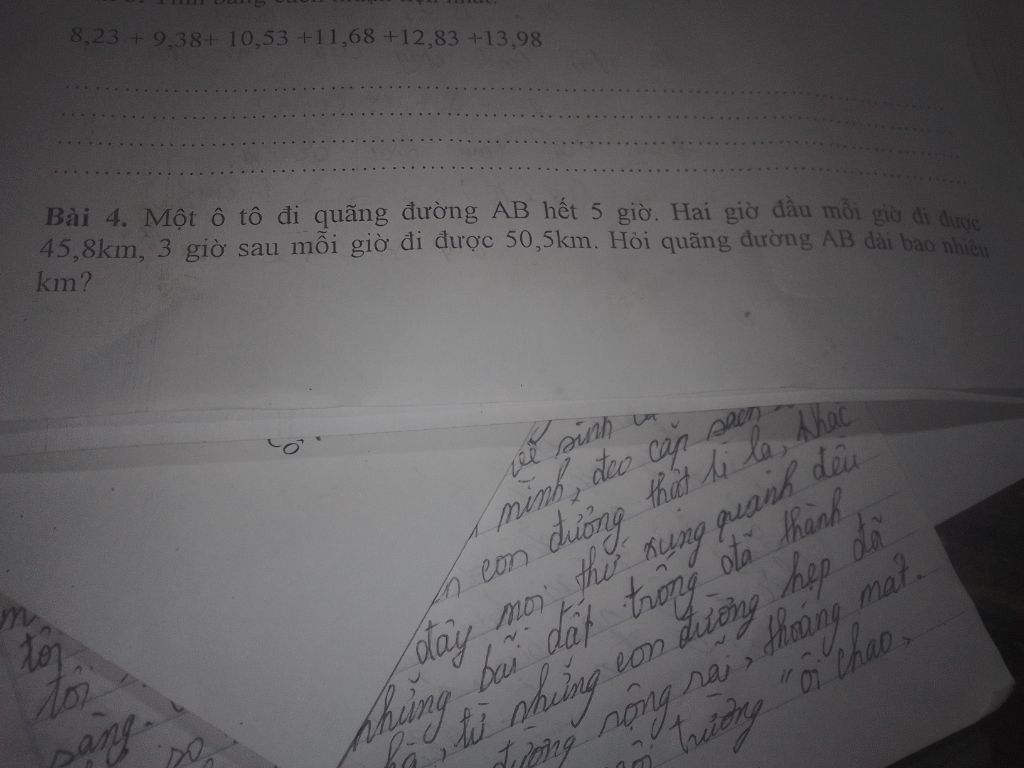 8,23 + 9,38+ 10,53 +11,68 +12,83 +13,98
Bài 4. Một ô tô đi quãng đường AB hết 5 giờ. Hai giờ đầu mỗi giờ đi được
45,8km, 3 giờ sau mỗi giờ đi được 50,5km. Hỏi quãng đường AB dài bao nhiêu
km?
sinh
mình, đeo cặp sách
con đường thật li lạ, khác
đây mọi thứ xung quanh đều
những bãi đất trống đã thành
từ những con đường hẹp đã
đường rộng rãi, thoáng mát.
trường "ôi chao,
tôi
tôi
sàng.